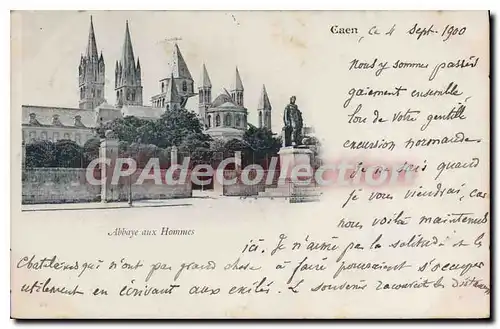 Caen, Ce 4 Sept. 1900
Nous y sommes passés
gaiement ensemble,
lors de votre gentille
excursion normande.
Je ne sais quand
je vous viendrai, car
nous voilà maintenant
ici. Je n'aime pas la solitude et les
Châtelains qui n'ont pas grand chose à faire pourraient s'occuper
utilement en écrivant aux exilés. Le souvenir raccourcit les distances
CPArama.com
Abbaye aux Hommes